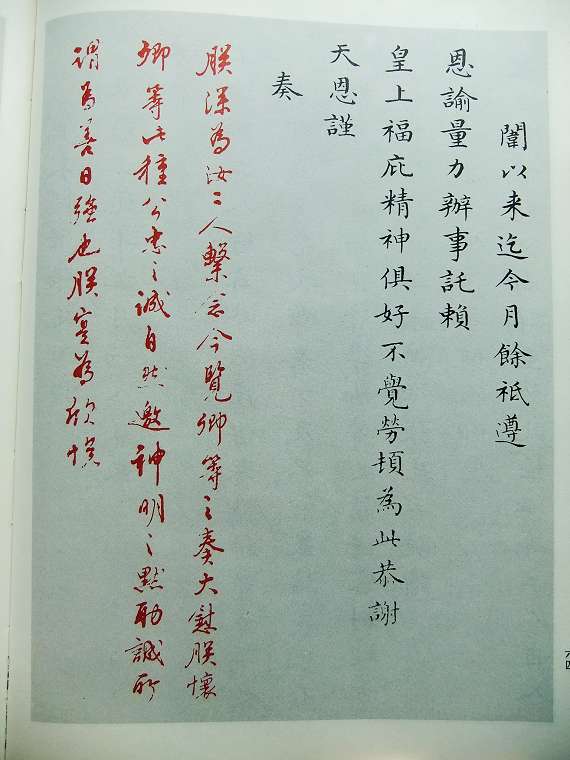 闈以来迄今月餘祗遵
恩諭量力辦事託賴
皇上福庇精神俱好不覺勞頓為此恭謝
天恩謹
奏
朕深為汝二人繫念今覽卿等之奏大慰朕懷
卿等此種公忠之誠自然邀神明之默助誠所
謂為善日強也朕寔為欣慎